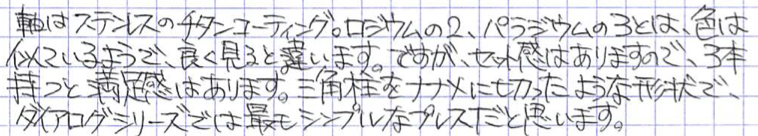 軸はステンレスのチタンコーティング。ロジウムの2、パラジウムの3とは、色は
似ているようで、良く見ると違います。ですが、セット感はありますので、3本
持つと満足感はあります。三角柱をナナメに切ったような形状で、
ダイアログシリーズでは最もシンプルなプレスだと思います。